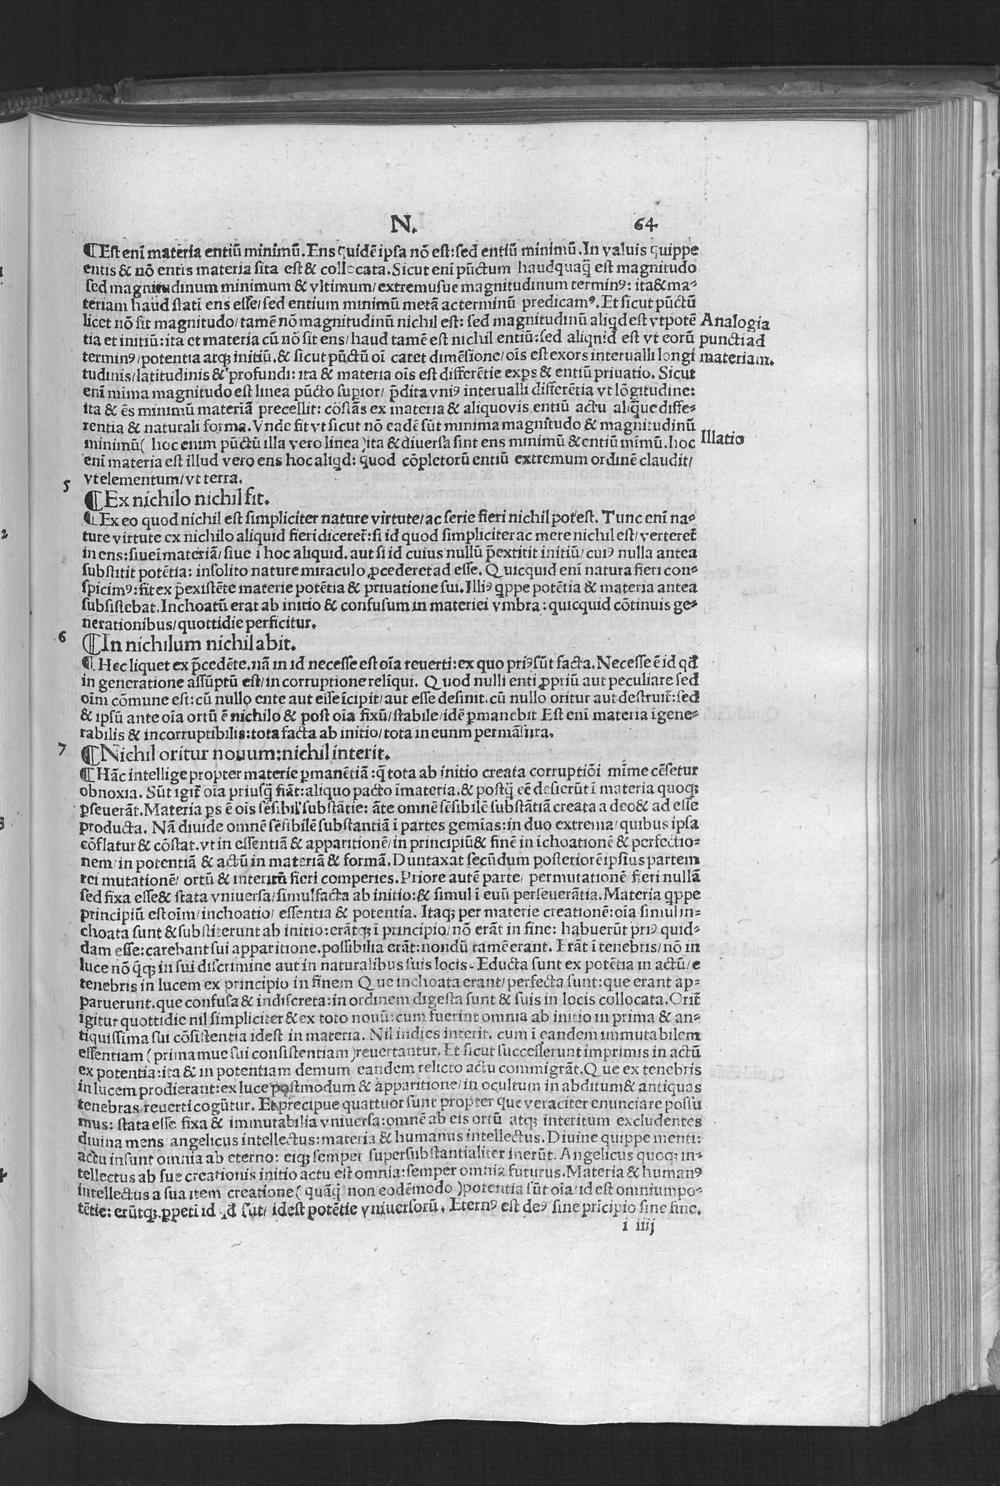 N. 64
¶Est eni᷉ materia entiū minimū. Ens quidē ipsa nō est: sed entiū minimū. In valuis quippe
entis & nō entis materia sita est & collocata. Sicut eni᷉ pūctum haudquaq̄ est magnitudo
sed magnitudinum minimum & vltimum/ extremusue magnitudinum terminꝰ: ita & ma-
teriam haud stati᷉ ens esse/ sed entium minimū metā ac terminū predicamꝰ. Et sicut pūctū
licet nō sit magnitudo/ tamē nō magnitudinū nichil est: sed magnitudinū aliqd est vtpote Analogia
tia et initiū: ita et materia cū nō sit ens/ haud tamē est nichil entiū: sed aliqnid est vt eorū puncti ad
terminꝰ/ potentia atqꝫ initiū. & sicut pūctū oi᷉ caret dimēsione/ ois est exors interualli longi materiam.
tudinis/ latitudinis & profundi: ita & materia ois est differētie exps & entiū priuatio. Sicut
eni᷉ mima magnitudo est linea pūcto supior/ p̄dita vniꝰ interualli differētia vt lōgitudine:
ita & ēs minimū materiā precellit: cōstās ex materia & aliquovis entiū actu aliq̄ue diffe-
rentia & naturali forma. Vnde fit vt sicut nō eadē sūt minima magnitudo & magnitudinū
minimū( hoc enim pūctū illa vero linea )ita & diuersa sint ens minimū & entiū mimū. hoc Illatio
eni᷉ materia est illud vero ens hoc aliqd: quod cōpletorū entiū extremum ordinē claudit/
vt elementum/ vt terra.
5 ¶Ex nichilo nichil fit.
¶Ex eo quod nichil est simpliciter nature virtute/ ac serie fieri nichil potest. Tunc eni᷉ na-
ture virtute ex nichilo aliquid fieri diceret᷉: si id quod simpliciter ac mere nichil est/ verteret᷉
in ens: siue i᷉ materiā/ siue i᷉ hoc aliquid. aut si id cuius nullū p̄extitit initiū/ cuiꝰ nulla antea
substitit potētia: insolito nature miraculo ꝓcederet ad esse. Quicquid eni᷉ natura fieri con-
spicimꝰ: fit ex p̄existēte materie potētia & priuatione sui. Illiꝰ qppe potētia & materia antea
subsistebat. Inchoatū erat ab initio & confusum in materiei vmbra: quicquid cōtinuis ge-
nerationibus/ quottidie perficitur.
6 ¶In nichilum nichil abit.
¶Hec liquet ex p̄cedēte. nā in id necesse est oi᷉a reuerti: ex quo priꝰ sūt facta. Necesse ē id qd
in generatione assūptū est/ in corruptione reli᷉qui. Quod nulli enti ꝓpriū aut peculiare sed
oi᷉m cōmune est: cū nullo ente aut esse i᷉cipit/ aut esse desinit. cū nullo oritur aut destruit᷉: sed
& ipsū ante oi᷉a ortū ē nichilo & post oi᷉a fixū/ stabile/ idē ꝑmanebit Est eni᷉ materia i᷉gene-
rabilis & incorruptibilis: tota facta ab initio/ tota in euum permāsura.
7 ¶Nichil oritur nouum: nichil interit.
¶Hāc intellige propter materie ꝑmanētiā: q̄ tota ab initio creata corruptiōi mi᷉me cēsetur
obnoxia. Sūt igit᷉ oi᷉a priusq̄ fiāt: aliquo pacto i᷉ materia. & postq̄ eē desierūt i᷉ materia quoqꝫ
ꝑseuerāt. Materia ps ē ois sēsibilˀ substātie: āte omnē sēsibilē substātiā creata a deo & ad esse
producta. Nā diuide omnē sēsibilē substantiā i᷉ partes gemi᷉as: in duo extrema/ quibus ipsa
cōflatur & cōstat. vt in essentiā & apparitionē/ in principiū & finē in i᷉choationē & perfectio-
nem/ in potentiā & actū in materiā & formā. Duntaxat secūdum posteriorē ipsius partem
rei mutationē/ ortū & interitū fieri comperies. Priore autē parte/ permutationē fieri nullā
sed fixa esse & stata vniuersa/ simul facta ab initio: & simul i᷉ euū perseuerātia. Materia qppe
principiū est oi᷉m/ inchoatio/ essentia & potentia. Itaqꝫ per materie creationē: oi᷉a simul in-
choata sunt & substiterunt ab initio: erātqꝫ i᷉ principio/ nō erāt in fine: habuerūt priꝰ quid-
dam esse: carebant sui apparitione. possibilia erāt: nondū tamē erant. Erāt i᷉ tenebris/ nō in
luce nō q̄qꝫ in sui discrimine aut in naturalibus suis locis. Educta sunt ex potētia in actū/ e
tenebris in lucem ex principio in finem Que inchoata erant/ perfecta sunt: que erant ap-
paruerunt. que confusa & indiscreta: in ordinem digesta sunt & suis in locis collocata. Orit᷉
igitur quottidie nil simpliciter & ex toto nouū: cum fuerint omnia ab initio in prima & an-
tiquissima sui cōsistentia idest in materia. Nil indies interit. cum i᷉ eandem immutabilem
essentiam ( primamue sui consistentiam )reuertantur. Et sicut successerunt imprimis in actū
ex potentia: ita & in potentiam demum eandem relicto actu commigrāt. Que ex tenebris
in lucem prodierant: ex luce postmodum & apparitione/ in ocultum in abditum & antiquas
tenebras reuerti cogūtur. Et precipue quattuor sunt propter que veraciter enunciare possu
mus: stata esse fixa & immutabilia vniuersa: omnē ab eis ortū atqꝫ interitum excludentes
diuina mens angelicus intellectus: materia & humanus intellectus. Diuine quippe menti:
actu insunt omnia ab eterno: eiqꝫ semper supersubstantialiter inerūt. Angelicus quoqꝫ in-
tellectus ab sue creationis initio actu est omnia: semper omnia futurus. Materia & humanꝰ
intellectus a sua item creatione ( quāq̄ non eodēmodo )potentia sūt oi᷉a/ id est omnium po-
tētie: erūtqꝫ ꝑpeti id qd sūt/ idest potētie vniuersorū. Eternꝰ est deꝰ sine pricipio sine fine.
i iiij